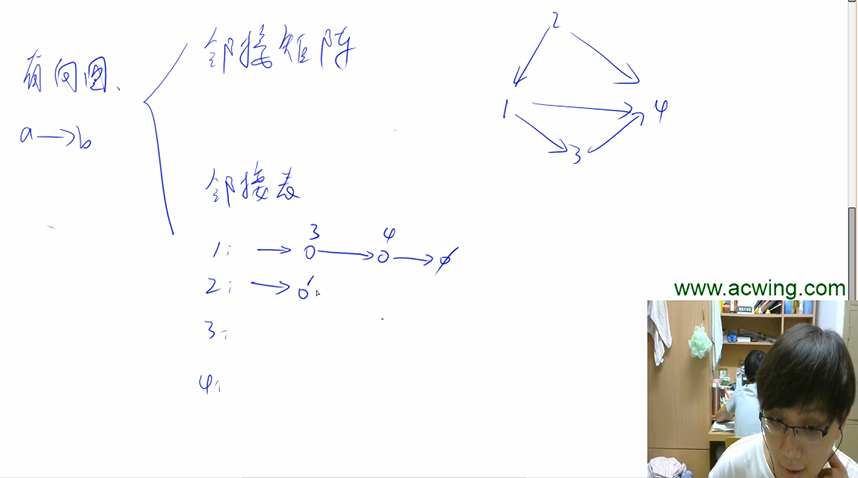 有向图、
a→b
邻接矩阵
邻接表
1: → 3 → 4 → ∅
2: → 1
3:
4:
2
1 4
3
www.acwing.com